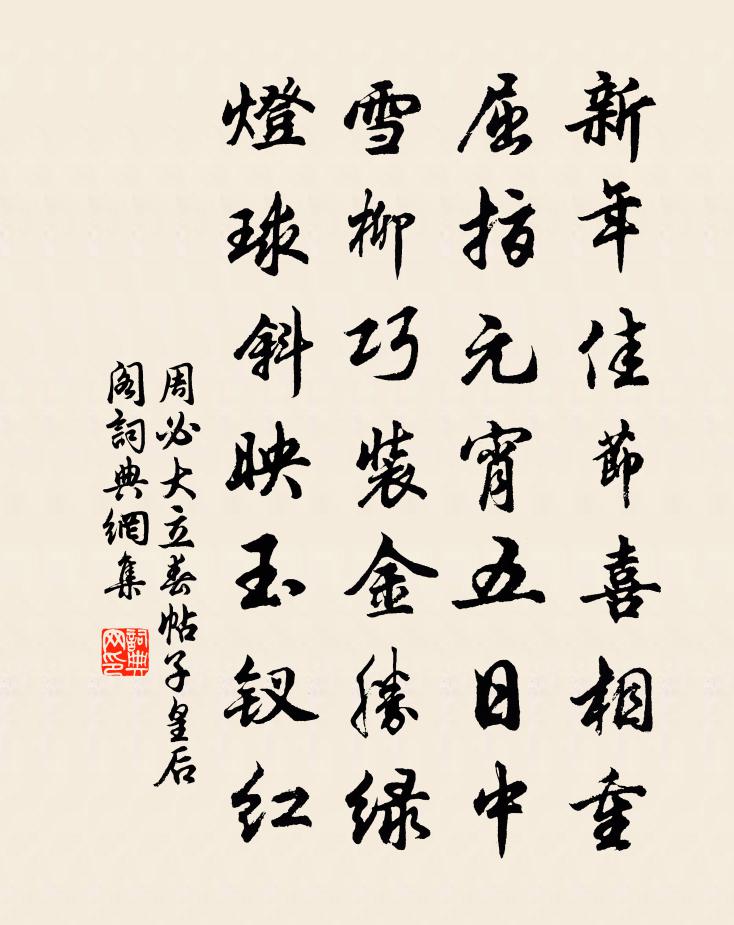 新年佳節喜相重
屈指元宵五日中
雪柳巧裝金勝綠
燈球斜映玉釵紅
周必大立春帖子皇后
閣詞典網集
詞典網印